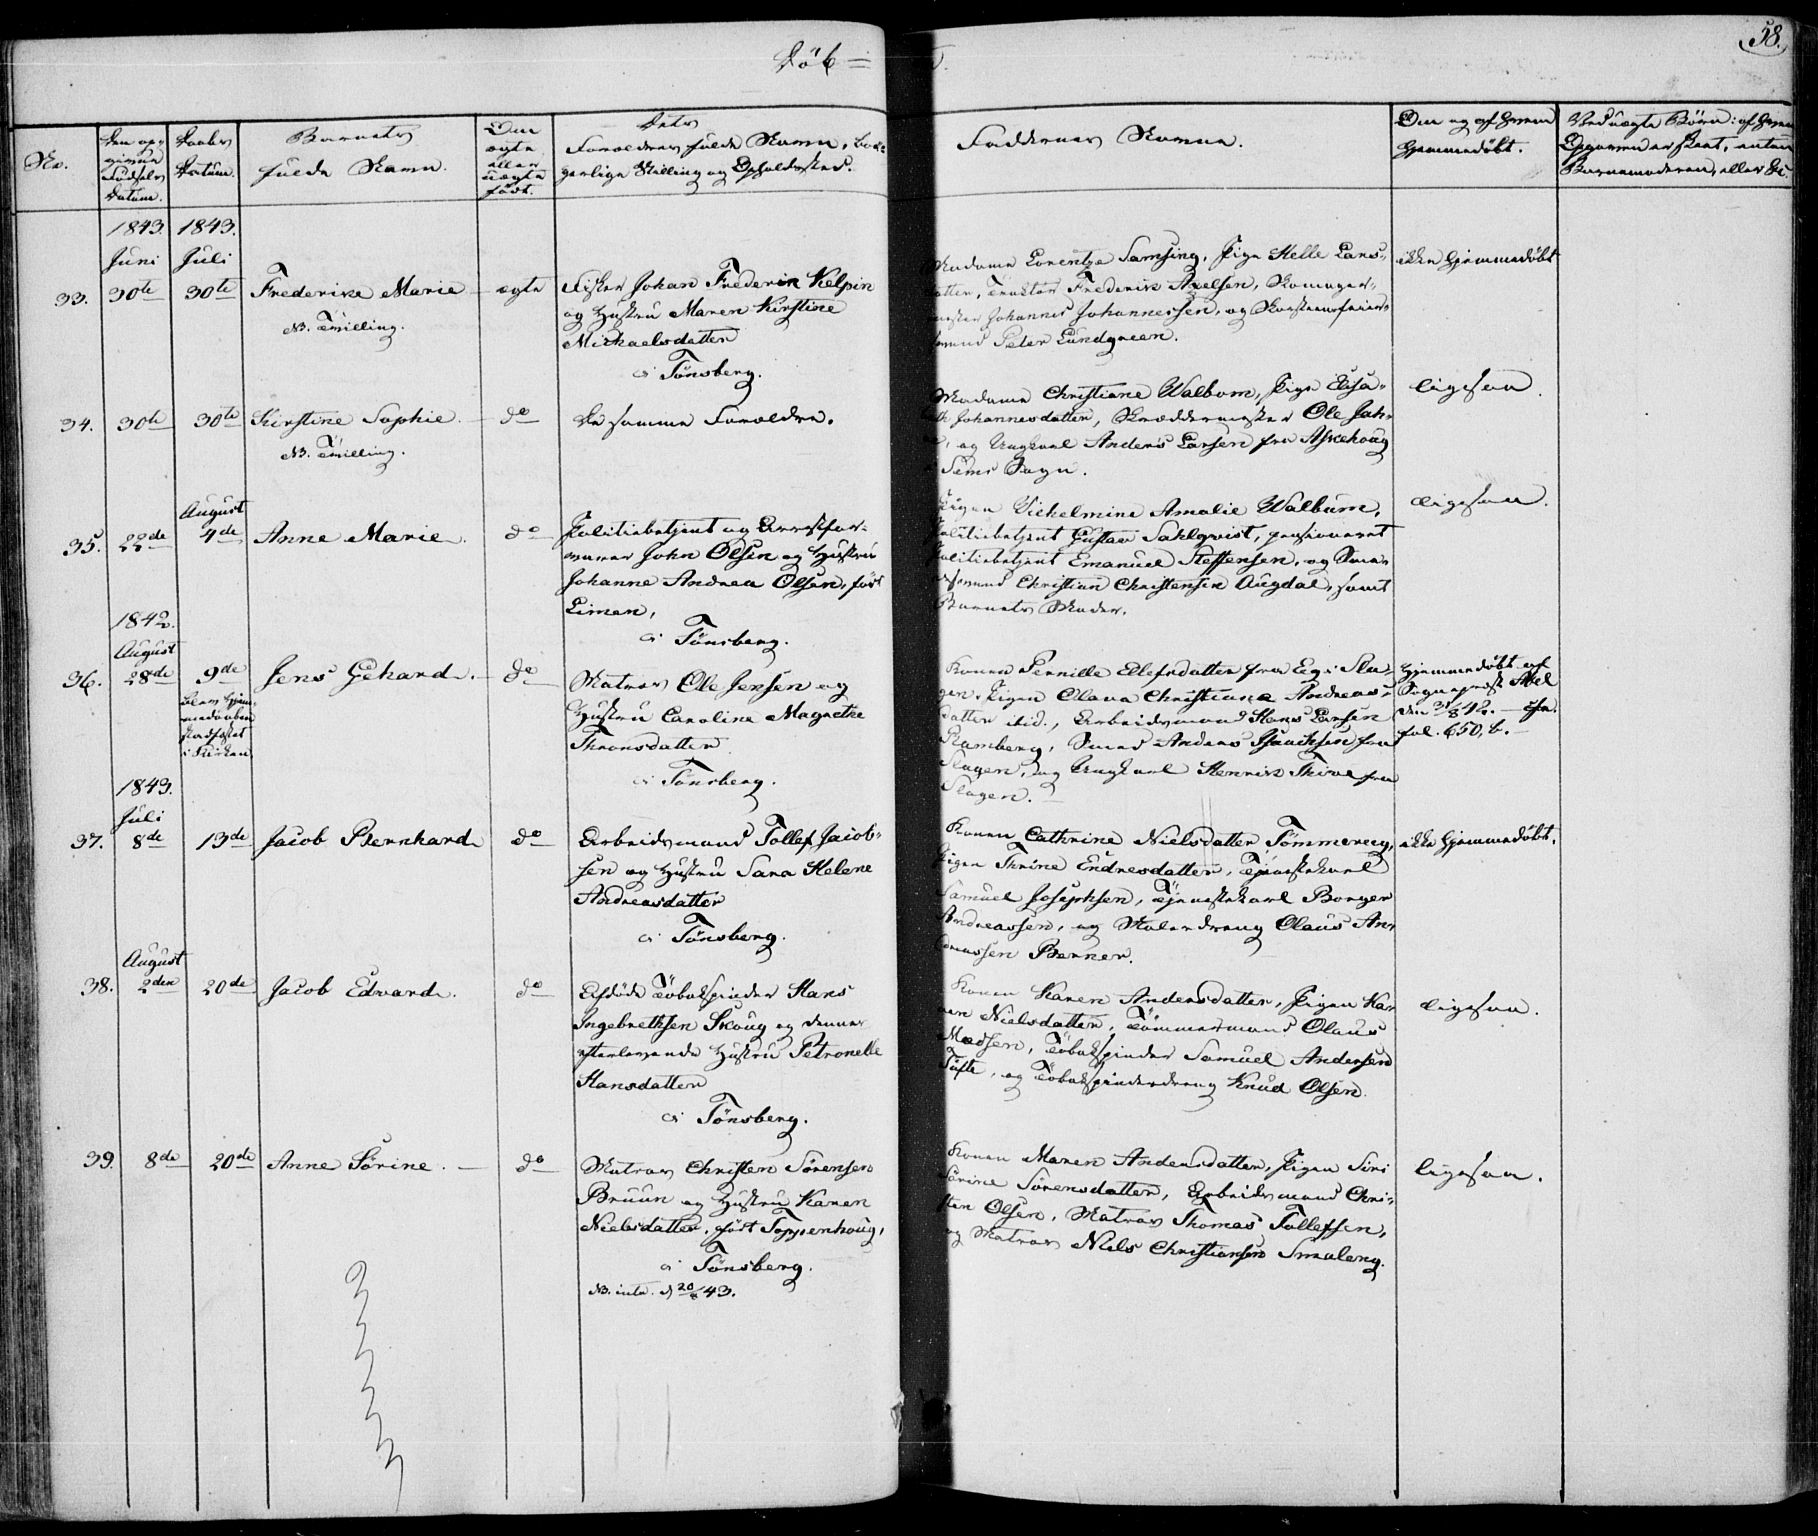 58.
Døb =
No.
Den op-
givne
Fødsels
Datum.
Daabs
Datum.
Barnets
fulde Navn.
Om
ægte
eller
uægte
født.
Dets
Forældres fulde Navn, bor-
gerlige Stilling og Opholdssted.
Faddernes Navne.
Om og af hvem
hjemmedøbt.
Ved uægte Børn: af hvem
Opgaven er skeet, enten
Barnemoderen, eller
1843. 1843.
Juni Juli
33. 30te 30te Frederike Marie ægte
NB. Tvilling.
Fisker Johan Frederik Kolpin
og Hustru Maren Kirstine
Michaelsdatter
i Tönsberg.
Madame Lorentze Samsing, Pige Helle Lars-
datter, Frederik Axelsen, Skomager-
mester Johannes Johannessen, og Skorsteensfeier-
svend Peter Lundgreen.
ikke hjemmedøbt
34. 30te 30te Kirstine Sophie. do
NB. Tvilling.
De samme Forældre.
Madame Christiane Walbom, Pige Elisa-
beth Johannesdatter, Skræddermester Ole Jahr-
, og Ungkarl Anders Larsen fra Askehoug
i Sems Sogn.
ligesaa.
August
35. 22de 4de Anne Marie. do
Politiebetjent og Arrestfor-
varer John Olsen og Hustru
Johanne Andrea Olsen, født
Liman,
i Tönsberg.
Pigen Vilhelmine Amalie Walbum,
Politiebetjent Gustav Sahlqvist, pensioneret
Politiebetjent Emanuel Steffensen, og
Christian Christensen Augdal, samt
Barnets Moder.
ligesaa.
1842.
August
36. 28de 9de Jens Gehard. do
blev hjem-
medaaben
stadfæstet
i Kirken
Matros Ole Jensen og
Hustru Caroline Magrethe
Thronsdatter
i Tönsberg.
Konen Pernille Ellefsdatter fra Eeg i Sla-
gen, Pigen Olava Christiane Andreas-
datter ibid., Arbeidsmand Hans Larsen
Ramberg, Smed Anders Isachsen fra
Slagen, og Ungkarl Henrik Thive fra
Slagen.
Hjemmedøbt af
Sognepræst Abel
den 31/8 42. - cfr.
fol. 650, b. -
1843.
Juli
37. 8de 13de Jacob Bernhard do
Arbeidsmand Tollef Jacob-
sen og Hustru Sara Helene
Andreasdatter
i Tönsberg.
Konen Cathrine Nielsdatter Tömmereeg,
Pigen Thrine Endresdatter, Tjenestekarl
Samuel Josephsen, Tjenestekarl Borger
Andreassen, og Malerdreng Olaus An-
dreassen Berner.
ikke hjemmedøbt.
August
38. 2den 20de Jacob Edvard. do
Afdöde Tobakspinder Hans
Ingebrethsen Skoug og dennes
efterlevende Hustru Petronelle
Hansdatter
i Tönsberg.
Konen Karen Andersdatter, Pigen Ka-
ren Nielsdatter, Tömmermand Olaus
Madsen, Tobakspinder Samuel Andersen
Tufte, og Tobakspinderdreng Knud Olsen.
ligesaa.
39. 8de 20de Anne Sörine. do
Matros Christen Sörensen
Bruun og Hustru Karen
Nielsdatter, født Toppenhoug,
i Tönsberg.
NB. intr. d 20/8 43.
Konen Maren Andersdatter, Pigen Siri
Sörine Sörensdatter, Arbeidsmand Chri-
sten Olsen, Matros Thomas Tollefsen,
og Matros Niels Christiansen Smaleng.
ligesaa.